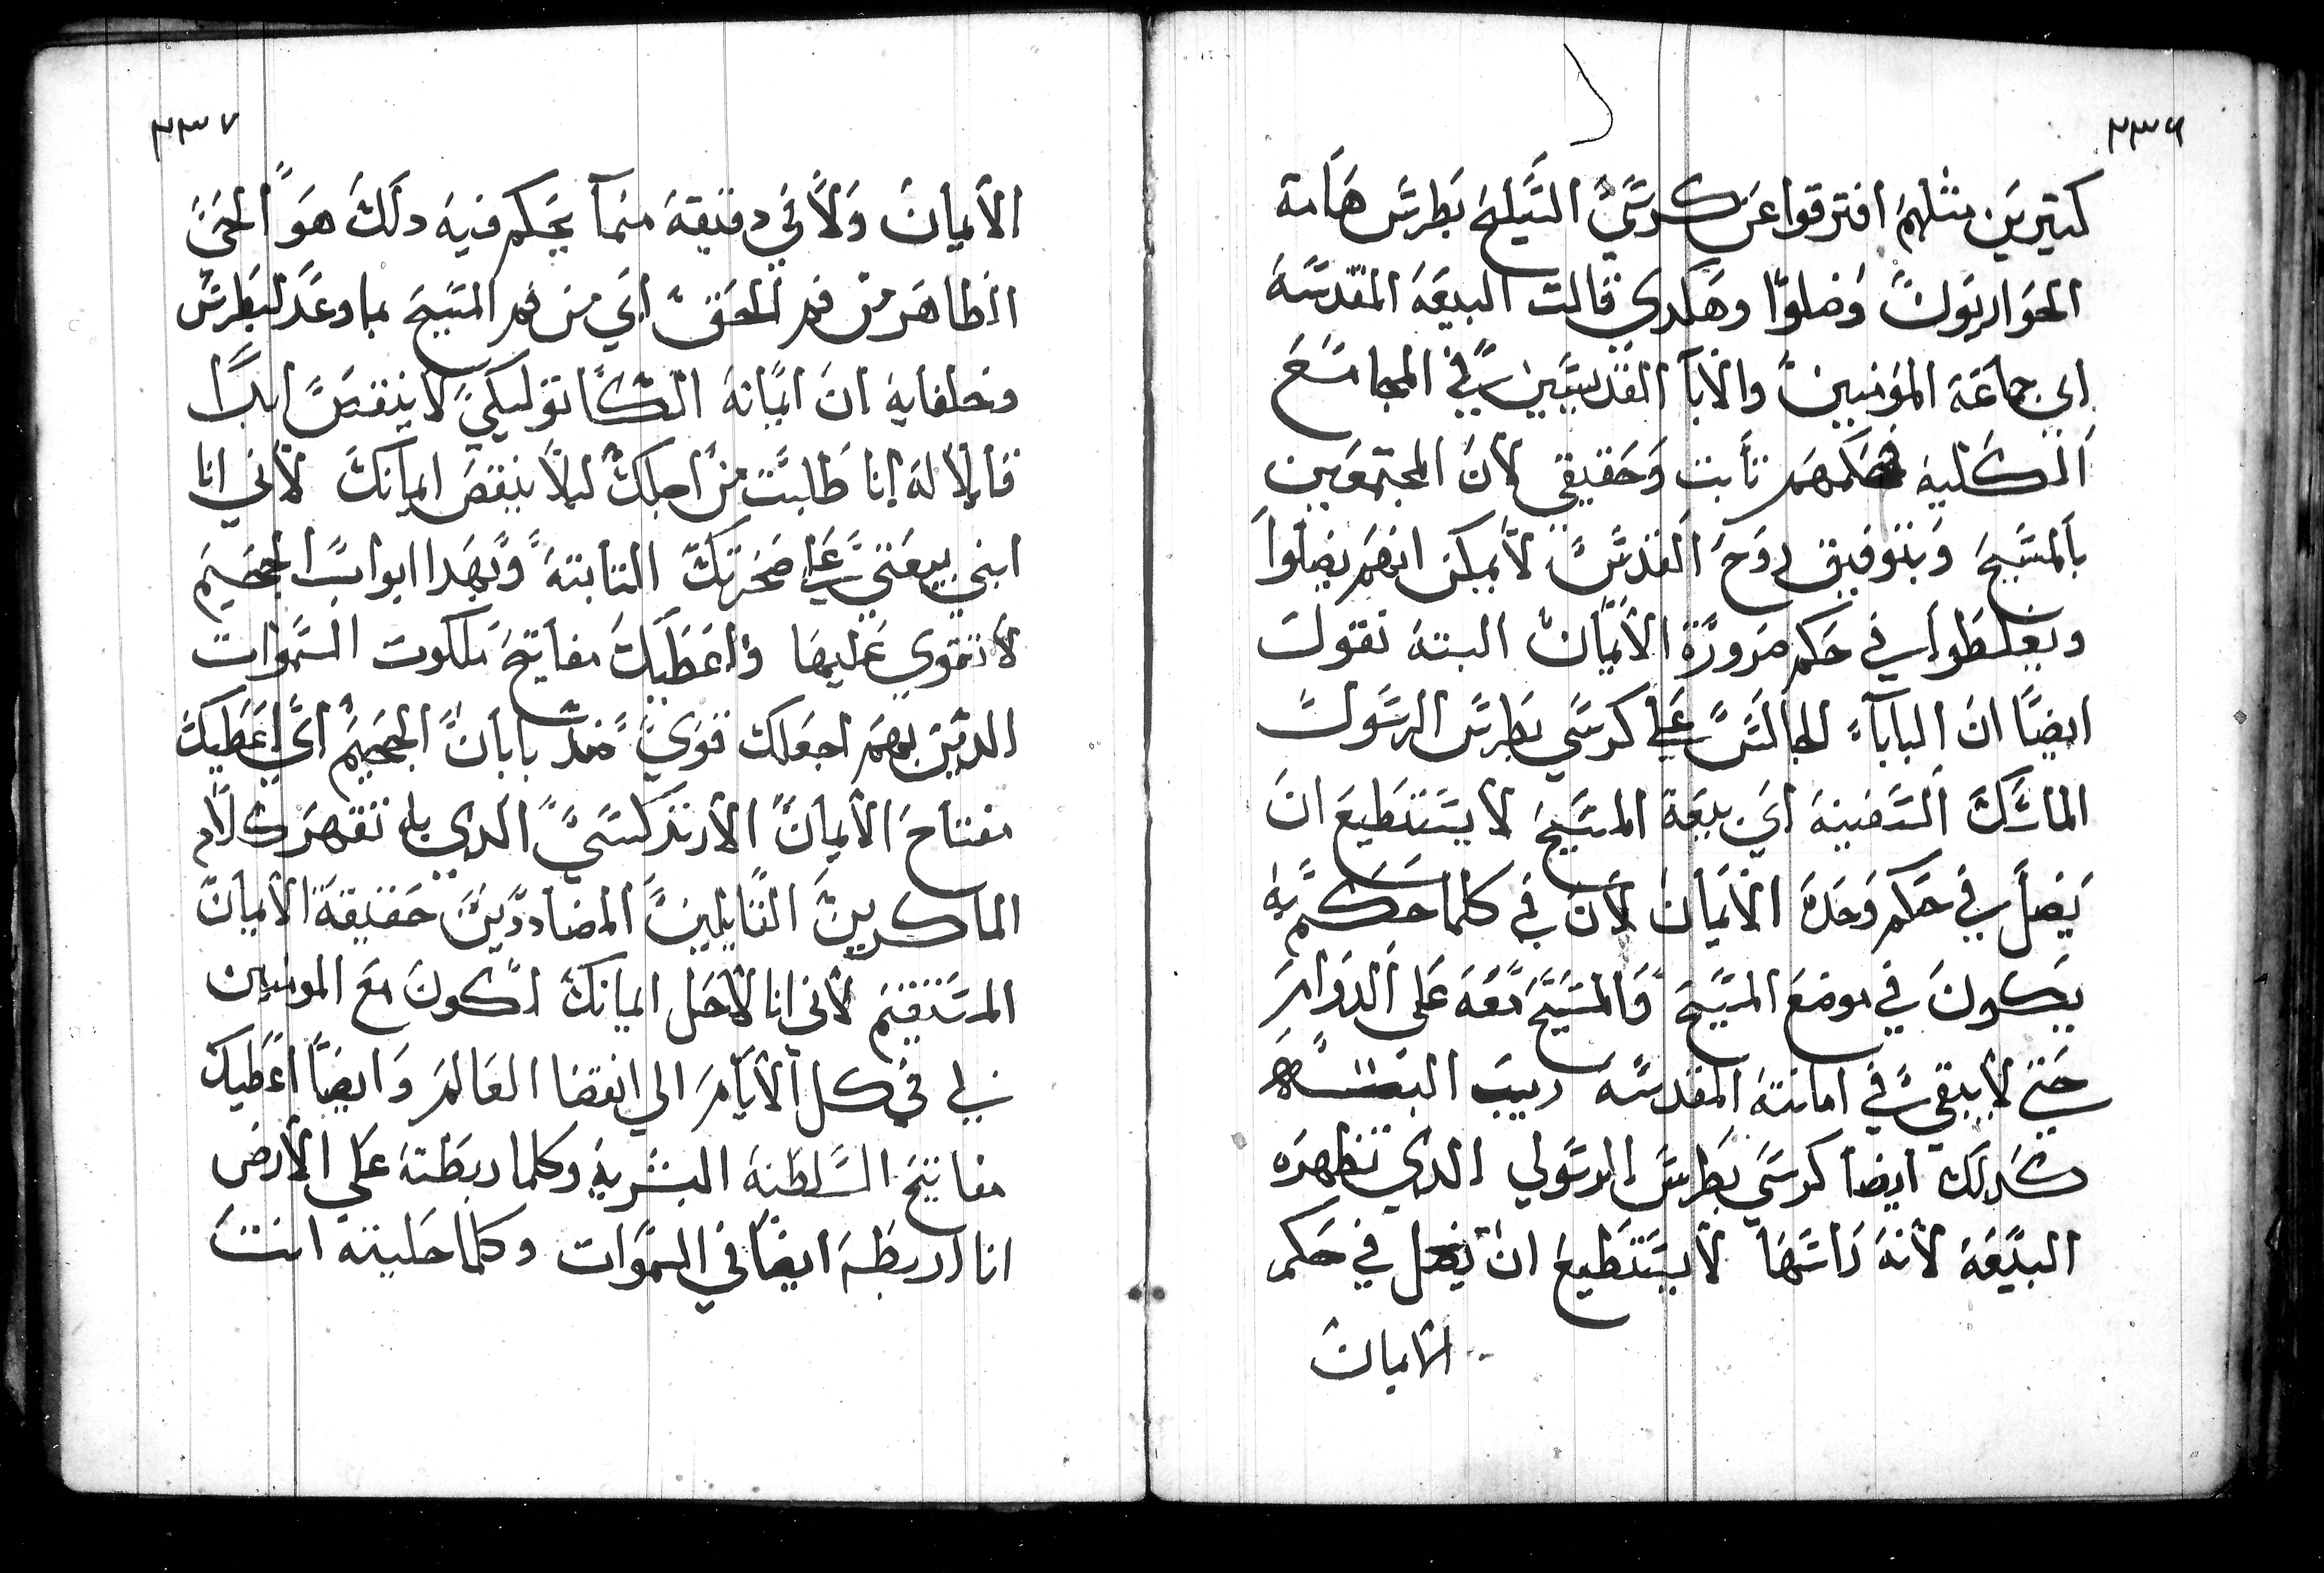 ٢٣٦
كتيرين مثلهم افترقوا عن كرسي السليح بطرس هامة
الحواريون وضلوا وهكدي قالت البيعة المقدسة
اي جماعة المؤمنين والابآ القديسين في المجامع
الكلية تأبت وحقيقي لان المجتمعين
بالمسيح وبتوفيق روح القدس لا يمكن انهم يضلوا
ويغلطوا في حكم ضرورة الأيمان البتة نقول
ايضا ان البابا الجالس علي كرسي بطرس الرسول
الماسك السفينة اي بيعة المسيح لا يستطيع ان
يضل في حكم وحدة الأيمان لان في كلما حكم به
يكون في موضع المسيح والمسيح معه علي الدوام
حتي لا يبقي في امانته المقدسة ريب البتة
كدلك ايضا كرسي بطرس الرسولي الدي تظهره
البيعة لأنه راسها لا يستطيع ان يضل في حكم
الأيمان
٢٣٧
الأيمان ولا في دقيقة منها يحكم فيه دلك هو الحق
الظاهر من فم الحق اي من فم المسيح بما وعد لبطرس
وخلفايه ان ايمانه الكاتوليكي لا ينقص ابدا
قايلا له انا طلبت من اجلك ليلا ينقص ايمانك لأني انا
ابني بيعتي علي صخرتك التابتة وبهدا ابواب الجحيم
لا تقوي عليها واعطيك مفاتيح ملكوت السموات
الدين بهم اجعلك قوي ضد بابان الجحيم اي اعطيك
مفتاح الأيمان الأرتدكسي الدي به تقهر كلام
الماكرين القايلين المضاددين حقيقة الأيمان
المستقيم لأني انا لأجل ايمانك اكون مع المومنين
بي في كل الأيام الي انقضا العالم وايضا اعطيك
مفاتيح السلطنة البشرية وكلما ربطته علي الأرض
انا اربطه ايضا في السموات وكلما حليته انت